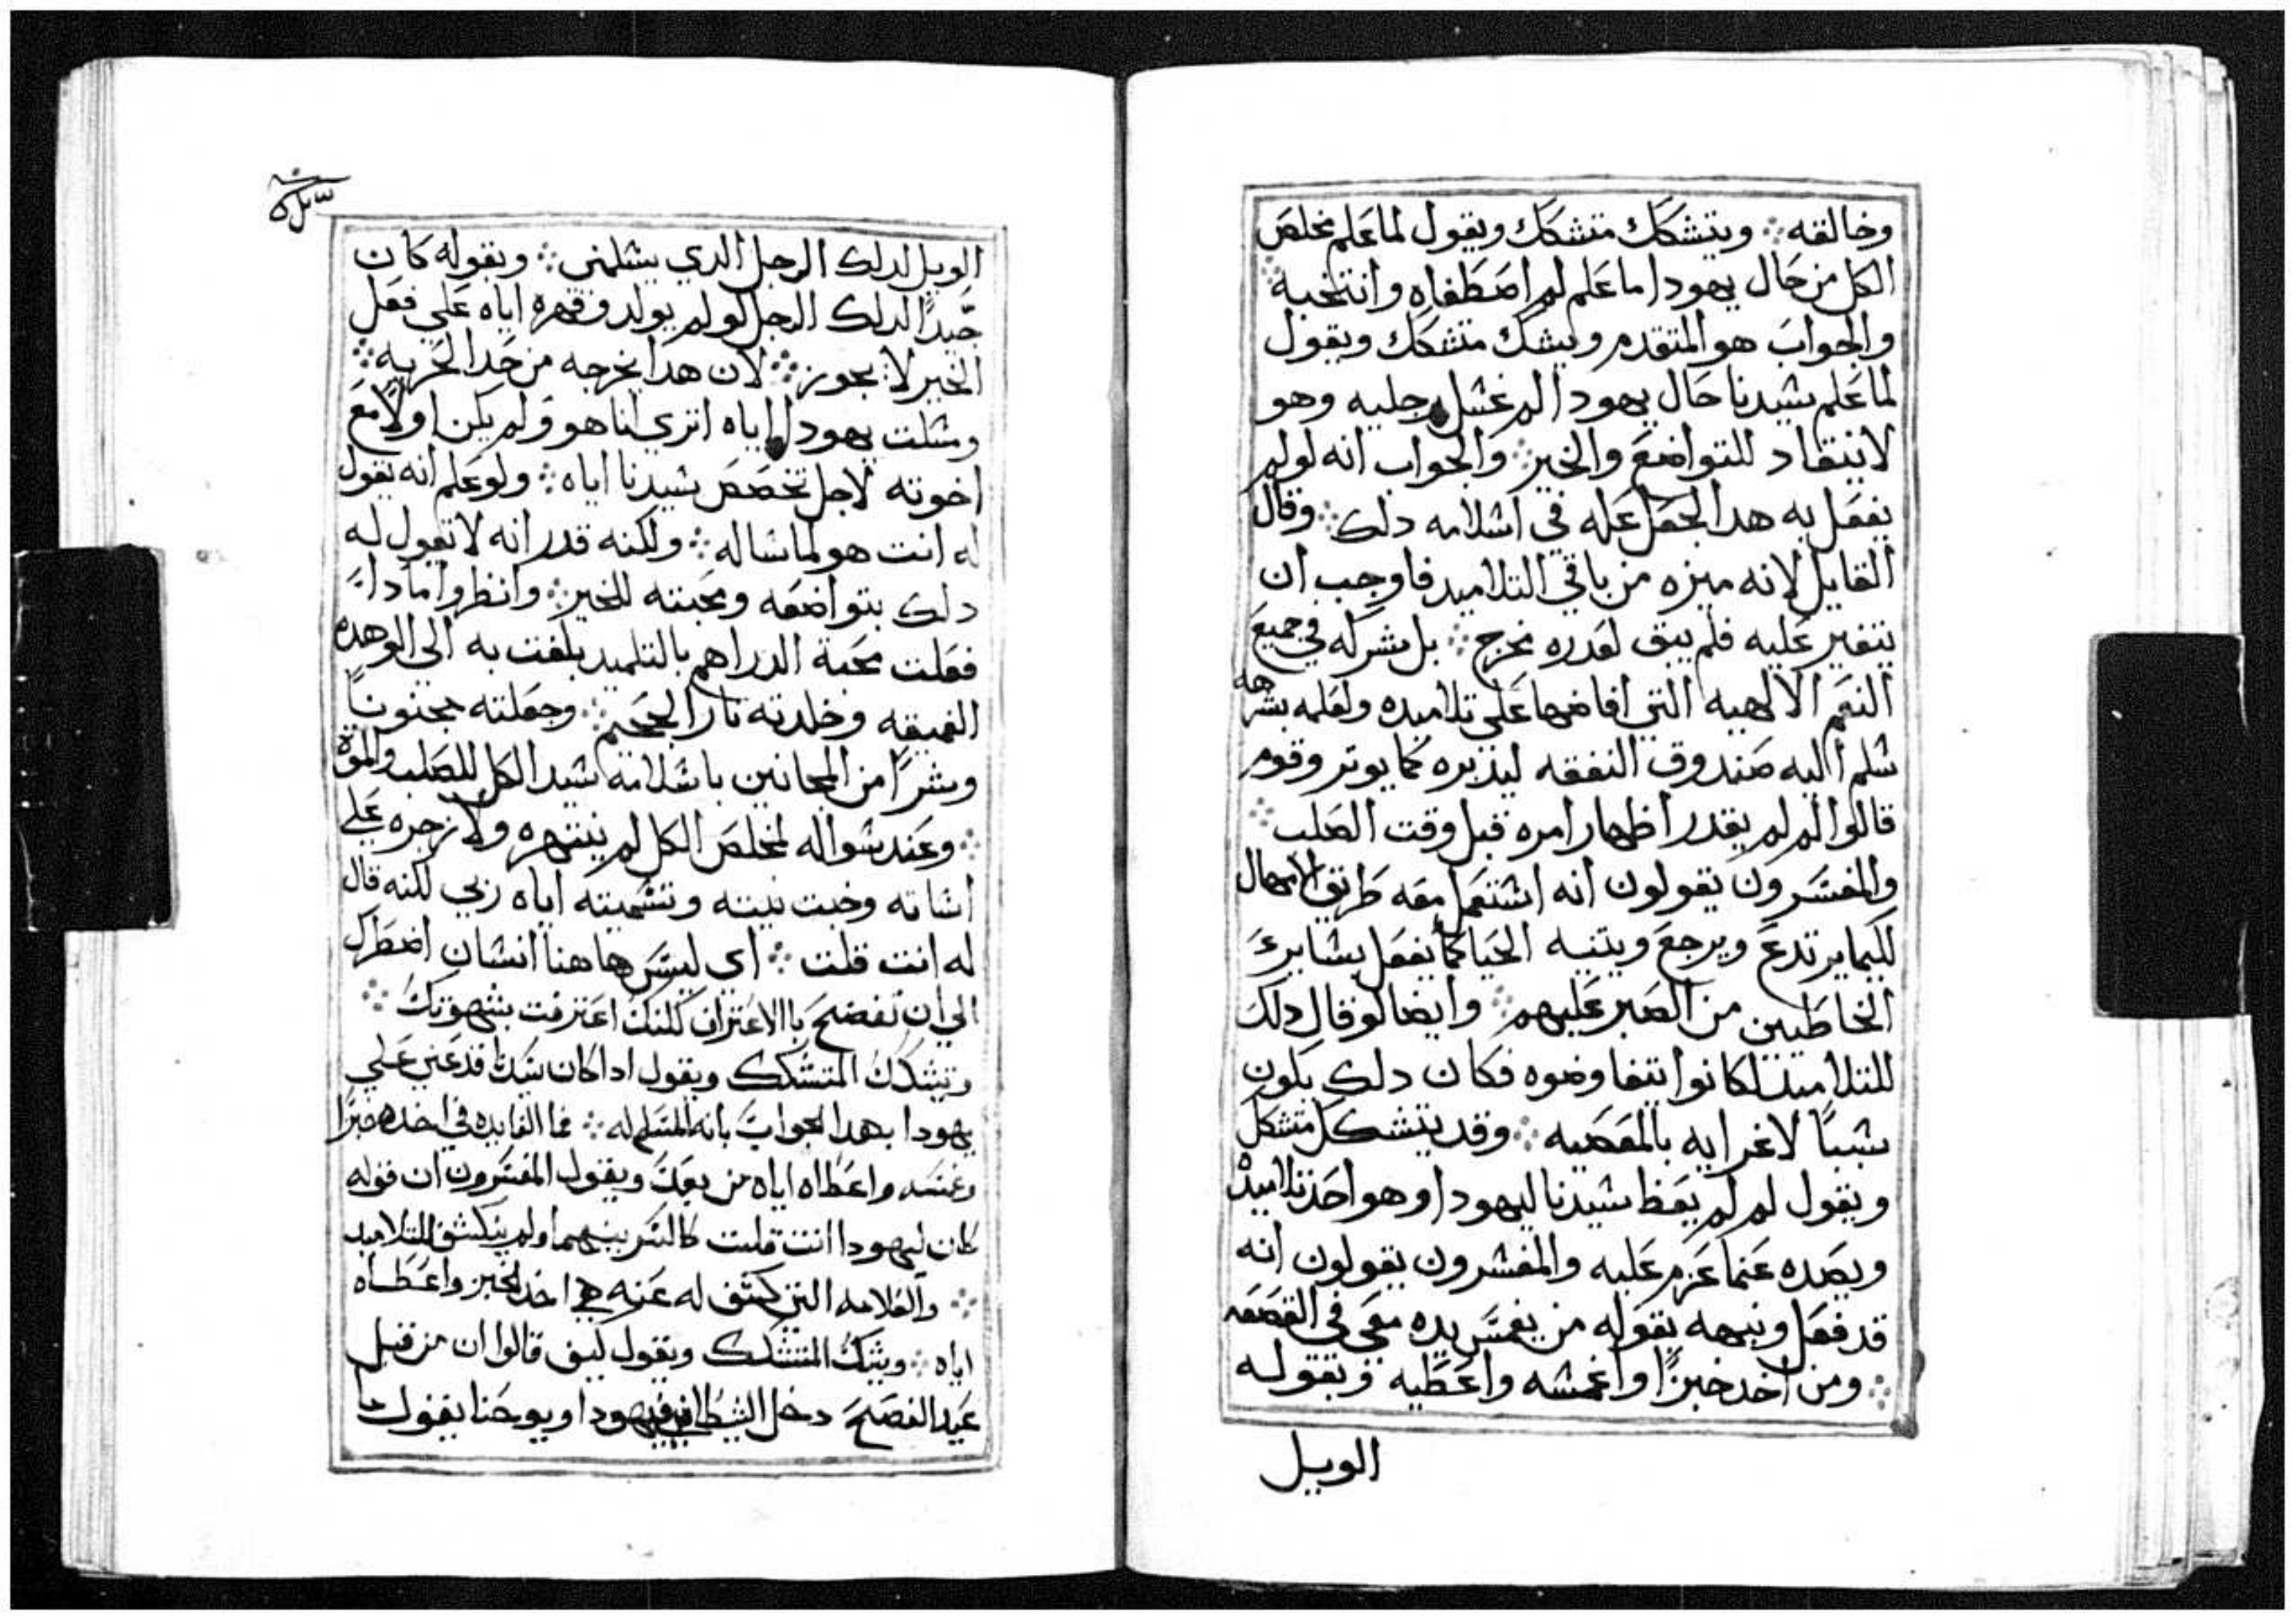 وخالقه ⁘ ويتشكك متشكك ويقول لما علم مخلص
الكل من حال يهودا ما علم لم اصطفاه وانتخبه ⁘
والجواب هو المتقدم ويشك متشكك ويقول
لما علم سيدنا حال يهودا لم غسل رجليه وهو
لا ينقاد للتواضع والخير ⁘ والجواب انه لو لم
يفعل به هدا لجعل عله في اسلامه دلك ⁘ وقال
القايل لانه ميزه من باقي التلاميد فاوجب ان
يتغير عليه فلم يبق لعدره مخرج ⁘ بل شركه في جميع
النعم الالهيه التي افاضها على تلاميده ولعلمه بشرهه
سلم اليه صندوق النفقه ليدبره كما يوتر وقوم
قالوا لم لم يقدر اظهار امره قبل وقت الصلب ⁘
والمفسرون يقولون انه استعمل معه طريق الامهال
لكيما يرتدع ويرجع وينتبه الحيا كما يفعل بساير
الخاطيين من الصبر عليهم ⁘ وايضا لو قال دلك
للتلاميد لكانوا يتفاوضوه فكان دلك يكون
سببًا لاغرايه بالمعصيه ⁘ وقد يتشكك متشكك
ويقول لم لم يعظ سيدنا ليهودا وهو احد تلاميده
ويصده عنما عزم عليه والمفسرون يقولون انه
قد فعل ونبهه بقوله من يغمس يده معي في القصعه
⁘ ومن اخد خبزًا واغمسه واعطيه وبقوله
الويل
الويل لدلك الرجل الدي يسلمني ⁘ وبقوله كان
جيدًا لدلك الرجل لو لم يولد وقهره اياه علي فعل
الخير لا يجوز ⁘ لان هدا يخرجه من حد الحريه ⁘
وسلت يهودا اياه اتري انا هو ولم يكن اولًا مع
اخوته لاجل تخصص سيدنا اياه ⁘ ولو علم انه يقول
له انت هو لما ساله ⁘ ولكنه قدر انه لا يقول له
دلك بتواضعه ومحبته للخير ⁘ وانظروا مادا
فعلت محبة الدراهم بالتلميد بلغت به الي الوهده
العميقه وخلدته نار الجحيم ⁘ وجعلته مجنونًا
وشرًا من المجانين باسلامه سيد الكل للصلب والموت
⁘ وعند سواله لمخلص الكل لم ينتهره ولا زجره علي
اساته وخبت نيته وتسميته اياه ربي لكنه قال
له انت قلت ⁘ اي ليس هاهنا انسان اضطرك
الي ان تفضح بالاعتراف لكنك اعترفت بشهوتك ⁘
ويتشكك المتشكك ويقول ادا كان سيدنا قد عني علي
يهودا بهدا الجواب بانه المسلم له ⁘ فما الفايده في اخده خبزًا
وغمسه واعطاه اياه من بعد ويقول المفسرون ان قوله
كان ليهودا انت قلت كالسر بينهما ولم ينكشف للتلاميد
⁘ والعلامه التي كشف له عزمه هي اخد الخبز واعطاه
اياه ⁘ ويشك المتشكك ويقول كيف قالوا ان من قبل
عيد الفصح دخل الشيطان في يهودا ويوحنا يقول